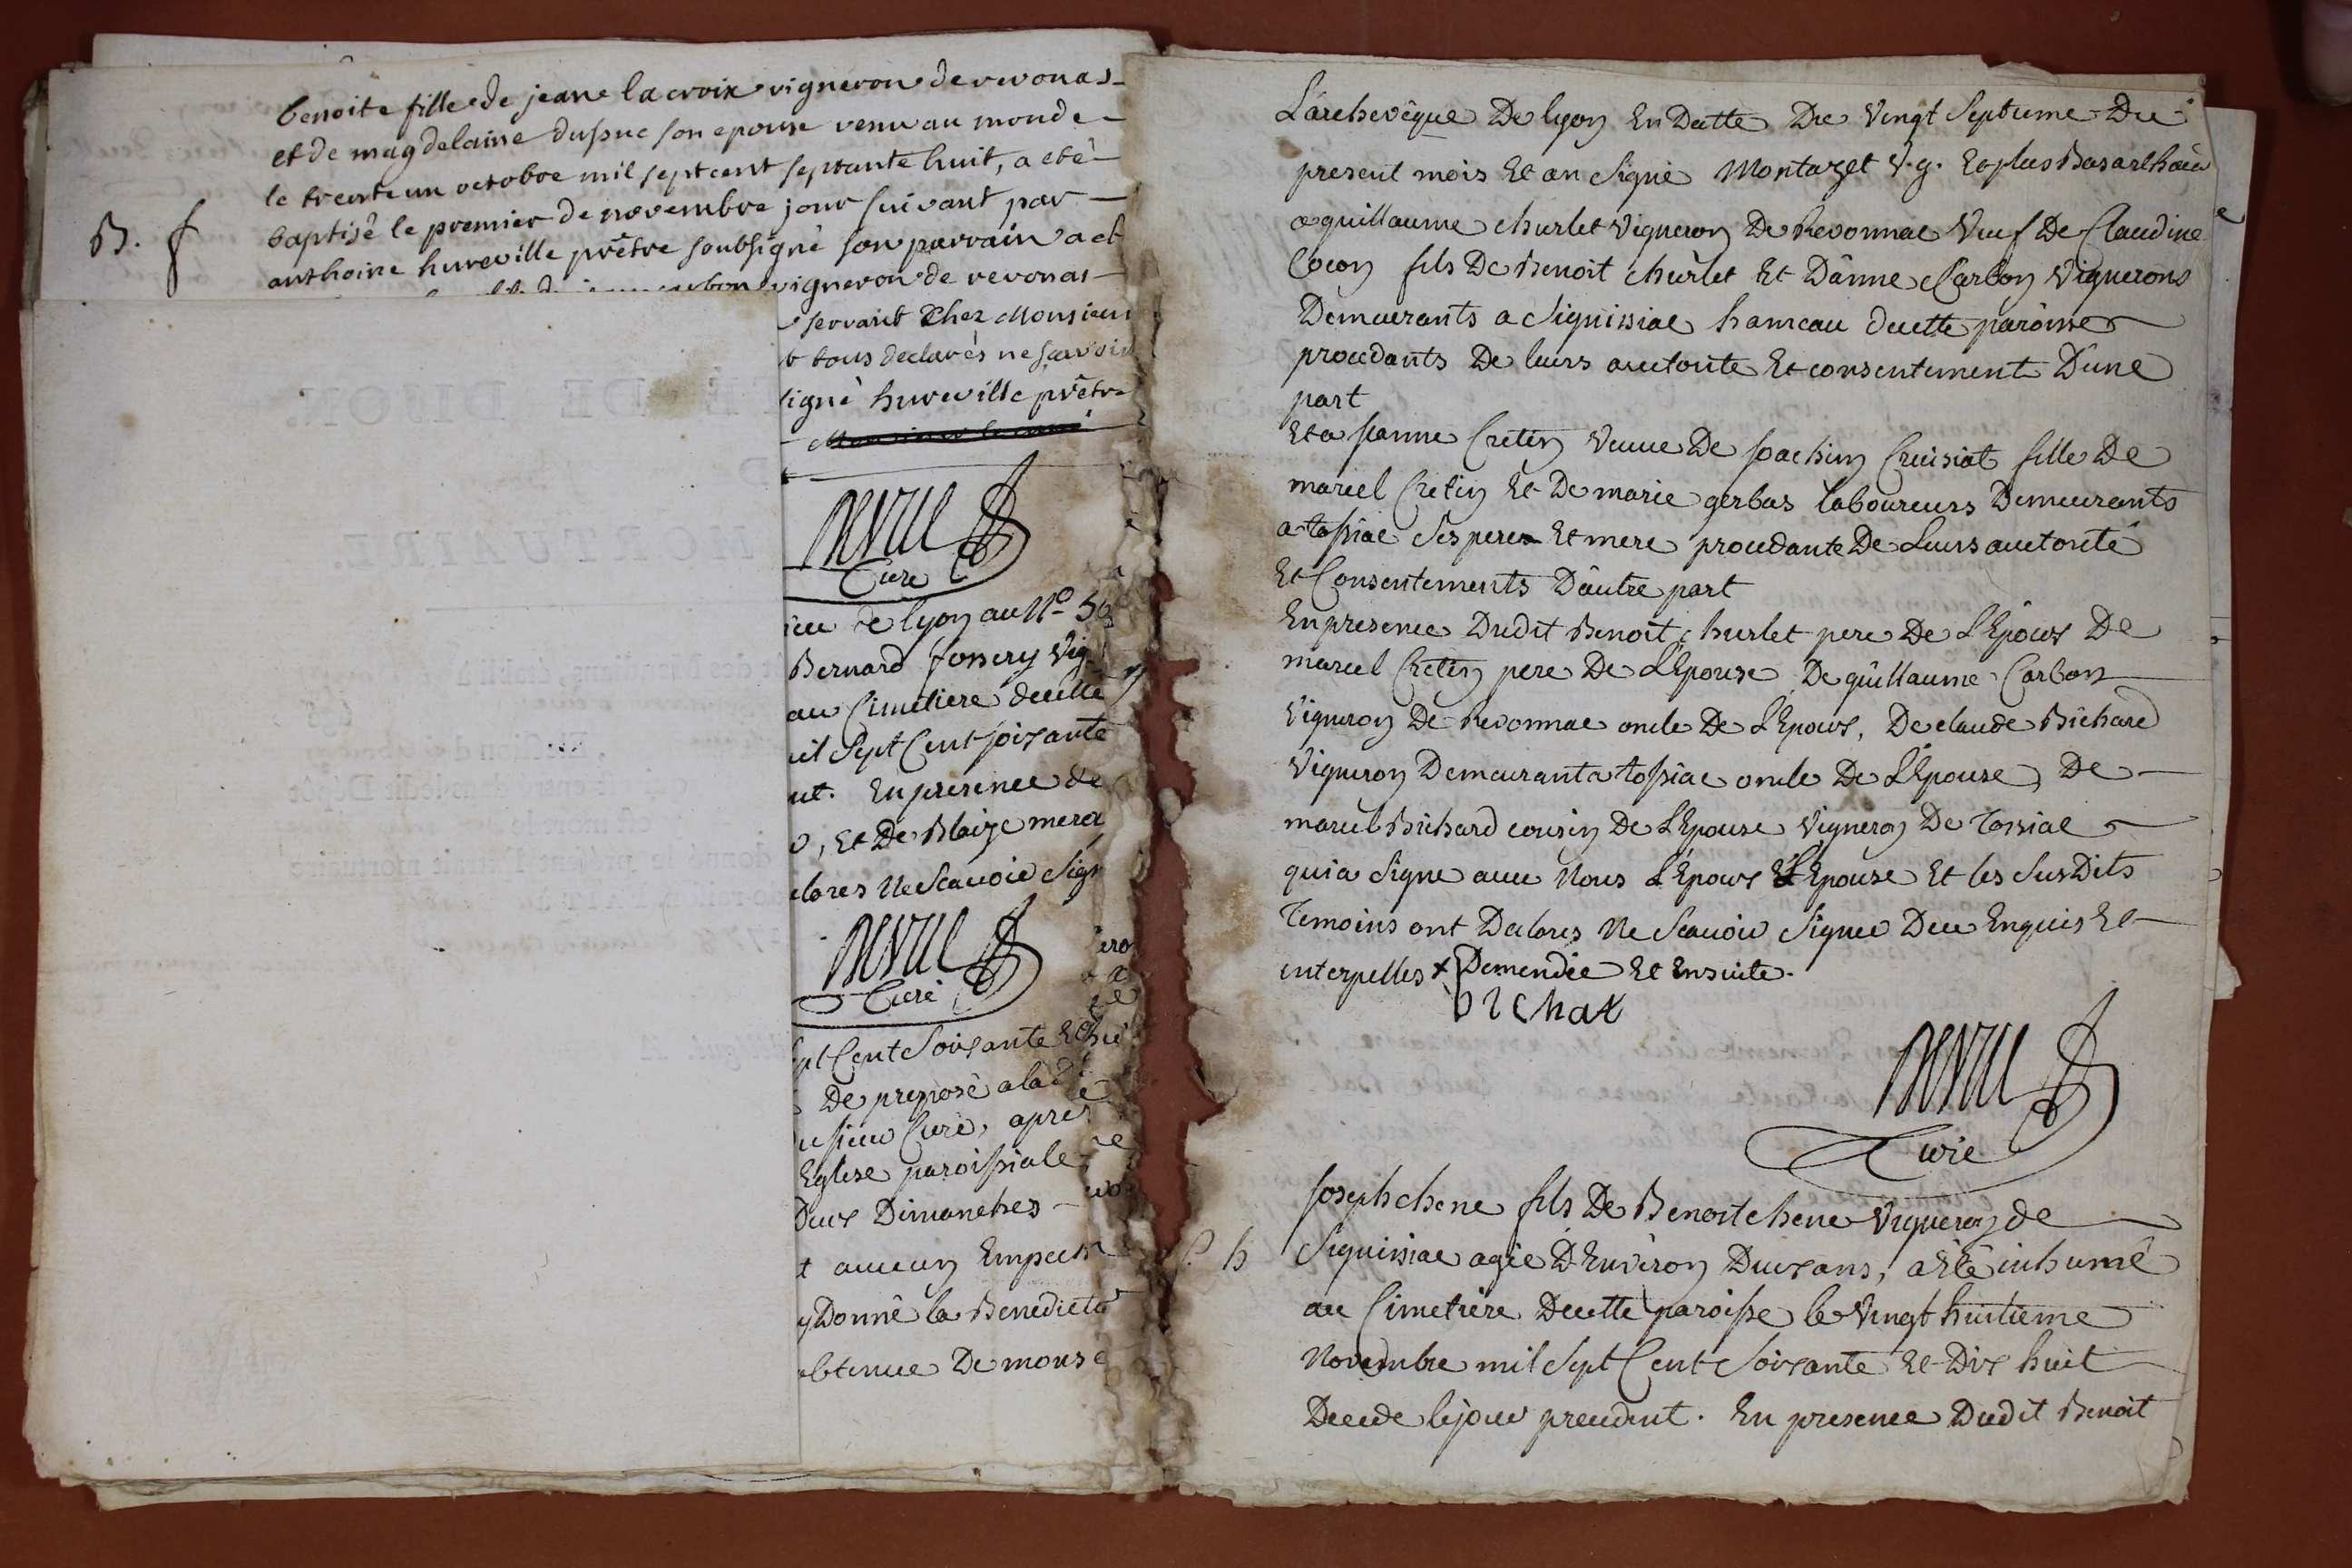 benoite fille de jean lacroix vigneron de revonas
et de magdelaine dupuc son epouse venu au monde
le trente un octobre mil sept cent septante huit, a eté
baptisé le premier de novembre jour suivant par
B. f
anthoine hureville prêtre soubsigné son parrain a et
vigneron de revonas
servant chez Monsieur
tous declarés ne savoir
signé hureville prêtre
Curé
de lyon au N°
Bernard fossery Vig
au Cimetiere decette
il Sept Cent soixante
En presence de
, Et De Blaize mera
clares Ne Scavoir Sign
Curé
pt Cent Soixante Et
De preposé a la
sieur Curé, apres
Eglise paroissiale
Deux Dimanches
aucun Empech
Donné la Benedicti
obtenue De monse
L'archevêque De lyon En Datte Du Vingt Septieme Du
present mois Et an Signé Montazet V.g. Et plus Bas
a guillaume churlet Vigneron De Revonnac Veuf De Claudine
Cocon fils De Benoit churlet Et D'anne Carbon Vignerons
Demeurants a Signissiac hameau decette paroisse
procedants De leurs auctorité Et consentement D'une
part
Et a Jeanne Cretin Veuve De Joachim Cruisiat fille De
marcel Cretin Et De marie gerbas laboureurs Demeurants
a tossiac Ses pere Et mere procedante De Leurs auctorité
Et Consentements D'autre part
En presence Dudit Benoit churlet pere De L'Epoux De
marcel Cretin pere De L'Epouse De guillaume Carbon
Vigneron De Revonnac oncle De L'Epoux, De claude Bichard
Vigneron Demeurant a tossiac oncle De L'Epouse, De
marcel Bichard cousin De L'Epouse Vigneron De Tossiac
qui a Signe avec Nous L'Epoux Et L'Epouse Et les Susdits
Temoins ont Declares Ne Scavoir Signer Dece Enquis Et
interpelles + Demendée Et Ensuite.
bichat
Curé
Joseph chene fils De Benoit chene Vigneron de
h Signissiac agée D'Environ Deux ans, a Eté inhumé
au Cimetiere Decette paroisse le Vingt huitieme
Novembre mil Sept Cent Soixante Et Dix huit
Decede le jour precedent. En presence Dudit Benoit